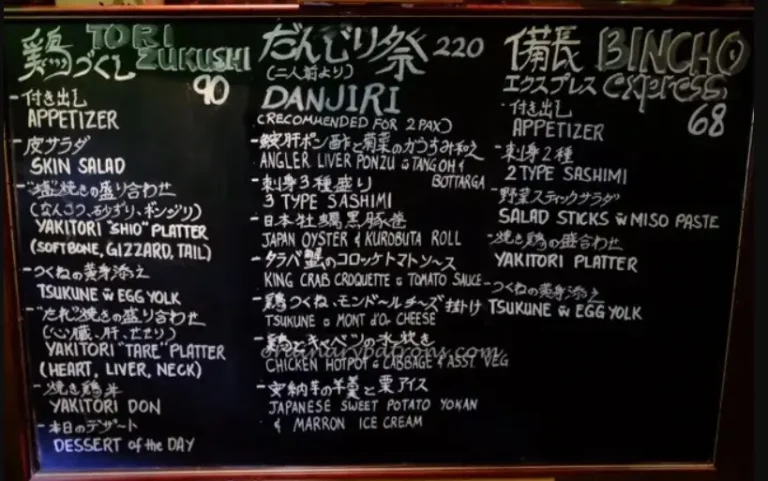 鶏づくし TORI ZUKUSHI
90
-付き出し
APPETIZER
-皮サラダ
SKIN SALAD
-"塩"焼きの盛り合わせ
(なんこつ、砂ずり、ボンジリ)
YAKITORI "SHIO" PLATTER
(SOFTBONE, GIZZARD, TAIL)
-つくねの黄身添え
TSUKUNE w EGG YOLK
-"たれ"焼きの盛り合わせ
(心臓、肝、せせり)
YAKITORI "TARE" PLATTER
(HEART, LIVER, NECK)
-焼き鶏丼
YAKITORI DON
-本日のデザート
DESSERT of the DAY
だんじり祭 220
(二人前より)
DANJIRI
(RECOMMENDED FOR 2PAX)
-鮟肝ポン酢と菊菜のからすみ和え
ANGLER LIVER PONZU & TANGOH &
BOTTARGA
-刺身3種盛り
3 TYPE SASHIMI
-日本牡蠣黒豚巻
JAPAN OYSTER & KUROBUTA ROLL
-タラバ蟹のコロッケトマトソース
KING CRAB CROQUETTE & TOMATO SAUCE
-鶏つくね、モンドールチーズ掛け
TSUKUNE & MONT d'Or CHEESE
-鶏とキャベツの水炊き
CHICKEN HOTPOT & CABBAGE & ASST. VEG
-安納芋の羊羹と栗アイス
JAPANESE SWEET POTATO YOKAN
& MARRON ICE CREAM
備長 BINCHO
エクスプレス express
68
-付き出し
APPETIZER
-刺身2種
2 TYPE SASHIMI
-野菜スティックサラダ
SALAD STICKS w MISO PASTE
-焼き鶏の盛合わせ
YAKITORI PLATTER
-つくねの黄身添え
TSUKUNE w EGG YOLK
ordinarypatrons.com